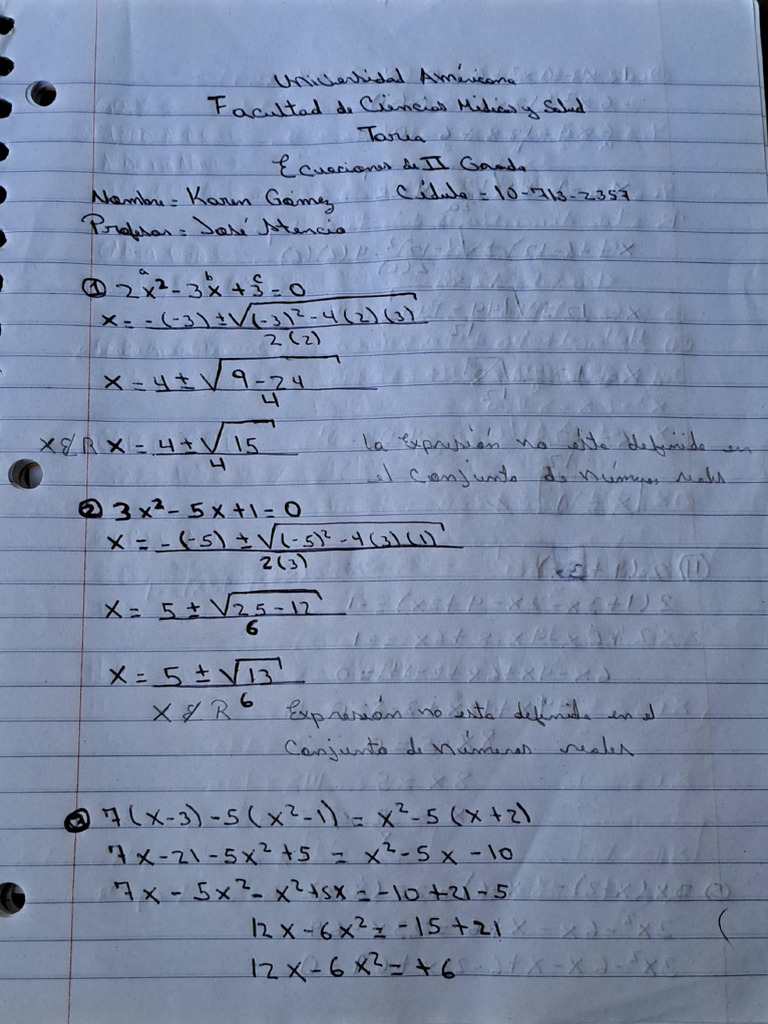 Universidad Américana
Facultad de Ciencias Médicas y Salud
Tarea
Ecuaciones de II Grado
Nombre = Karen Gómez Cédula = 10-713-2357
Profesor = José Atencio
① 2x² - 3x + 3 = 0
a b c
x = -(-3) ± √(-3)² - 4(2)(3)
2(2)
x = 4 ± √9 - 24
4
X ∉ R x = 4 ± √15 la expresión no esta definida en
4 el Conjunto de números reales
② 3x² - 5x + 1 = 0
x = -(-5) ± √(-5)² - 4(3)(1)
2(3)
x = 5 ± √25 - 12
6
x = 5 ± √13
6
X ∉ R Expresión no esta definida en el
Conjunto de números reales
③ 7(x-3) - 5(x²-1) = x² - 5(x+2)
7x - 21 - 5x² + 5 = x² - 5x - 10
7x - 5x² - x² + 5x = -10 + 21 - 5
12x - 6x² = -15 + 21
12x - 6x² = +6